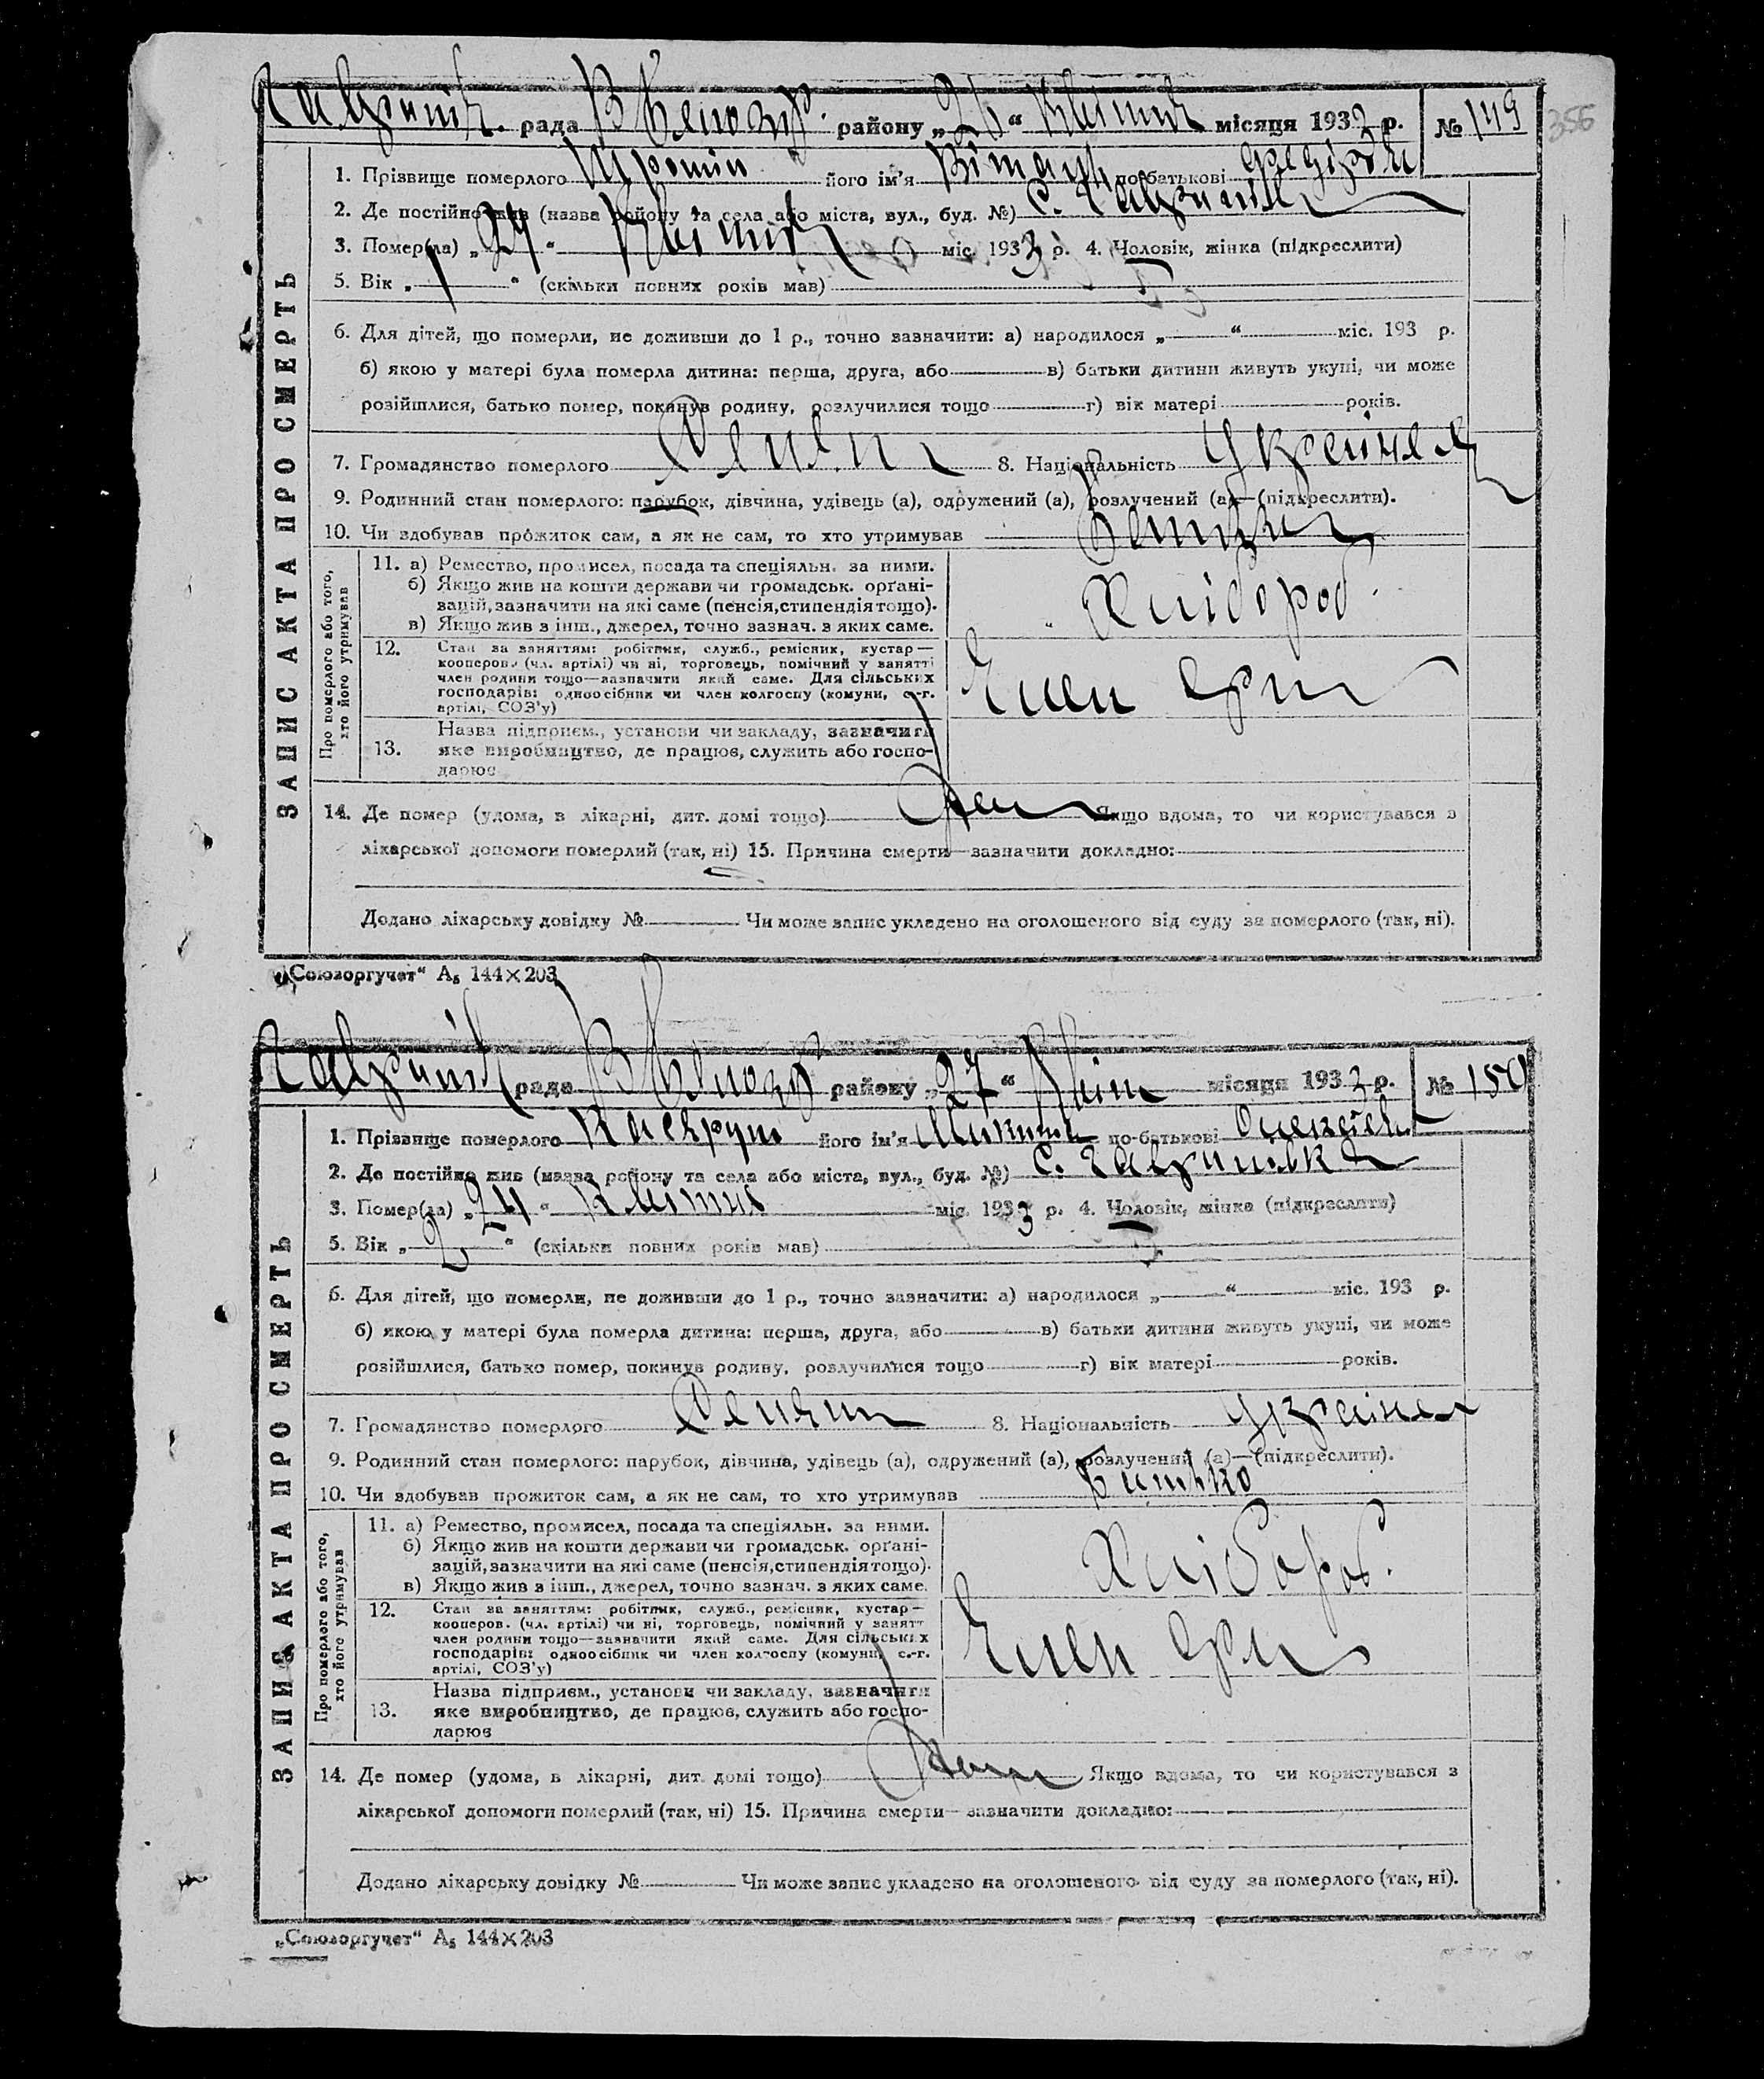 рада району „26“ Квітня місяця 1933 р. № 149
356
1. Прізвище померлого його ім'я Віталій по батькові
2. Де постійно жив (назва району та села або міста, вул., буд. №) с.
3. Помер(ла) „24“ Квітня міс. 1933 р. 4. Чоловік, жінка (підкреслити)
5. Вік „1“ (скільки повних років мав)
6. Для дітей, що померли, не доживши до 1 р., точно зазначити: а) народилося „ “ міс. 193 р.
б) якою у матері була померла дитина: перша, друга, або в) батьки дитини живуть укупі, чи може
розійшлися, батько помер, покинув родину, розлучилися тощо г) вік матері років.
7. Громадянство померлого 8. Національність Украінец
9. Родинний стан померлого: парубок, дівчина, удівець (а), одружений (а), розлучений (а)—(підкреслити).
10. Чи здобував прожиток сам, а як не сам, то хто утримував
ЗАПИС АКТА ПРО СМЕРТЬ
Про померлого або того,
хто його утримував
11. а) Ремество, промисел, посада та спеціяльн. за ними.
б) Якщо жив на кошти держави чи громадськ. орґані-
зацій, зазначити на які саме (пенсія, стипендія тощо).
в) Якщо жив з інш., джерел, точно зазнач. з яких саме.
Хлібороб.
12. Стан за заняттям: робітник, служб., ремісник, кустар—
кооперов. (чл. артілі) чи ні, торговець, помічний у занятті
член родини тощо—зазначити який саме. Для сільських
господарів: одноосібник чи член колгоспу (комуни, с.-г.
артілі, СОЗ'у)
Член
Назва підприєм., установи чи закладу, зазначити
13. яке виробництво, де працює, служить або госпо-
дарює
14. Де помер (удома, в лікарні, дит. домі тощо) Якщо вдома, то чи користувався з
лікарської допомоги померлий (так, ні) 15. Причина смерти—зазначити докладно:
Додано лікарську довідку № Чи може запис укладено на оголошеного від суду за померлого (так, ні).
„Союзоргучет“ А₅ 144×203
рада району „27“ Квіт місяця 1933 р. № 150
1. Прізвище померлого його ім'я Микита по-батькові
2. Де постійно жив (назва району та села або міста, вул., буд. №) с. Гаврилівка
3. Помер(ла) „24“ Квітня міс. 1933 р. 4. Чоловік, жінка (підкреслити)
5. Вік „2“ (скільки повних років мав)
6. Для дітей, що померли, не доживши до 1 р., точно зазначити: а) народилося „ “ міс. 193 р.
б) якою у матері була померла дитина: перша, друга, або в) батьки дитини живуть укупі, чи може
розійшлися, батько помер, покинув родину, розлучилися тощо г) вік матері років.
7. Громадянство померлого 8. Національність Украінец
9. Родинний стан померлого: парубок, дівчина, удівець (а), одружений (а), розлучений (а)—(підкреслити).
10. Чи здобував прожиток сам, а як не сам, то хто утримував Батько
ЗАПИС АКТА ПРО СМЕРТЬ
Про померлого або того,
хто його утримував
11. а) Ремество, промисел, посада та спеціяльн. за ними.
б) Якщо жив на кошти держави чи громадськ. орґані-
зацій, зазначити на які саме (пенсія, стипендія тощо).
в) Якщо жив з інш., джерел, точно зазнач. з яких саме.
Хлібороб.
12. Стан за заняттям: робітник, служб., ремісник, кустар—
кооперов. (чл. артілі) чи ні, торговець, помічний у занятт
член родини тощо—зазначити який саме. Для сільських
господарів: одноосібник чи член колгоспу (комуни, с.-г.
артілі, СОЗ'у)
Член
Назва підприєм., установи чи закладу, зазначити
13. яке виробництво, де працює, служить або госпо-
дарює
14. Де помер (удома, в лікарні, дит. домі тощо) Якщо вдома, то чи користувався з
лікарської допомоги померлий (так, ні) 15. Причина смерти—зазначити докладно:
Додано лікарську довідку № Чи може запис укладено на оголошеного від суду за померлого (так, ні).
„Союзоргучет“ А₅ 144×203